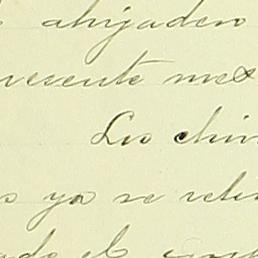 ahijaden
resente mes
Los chin
s ya se reti
ado el